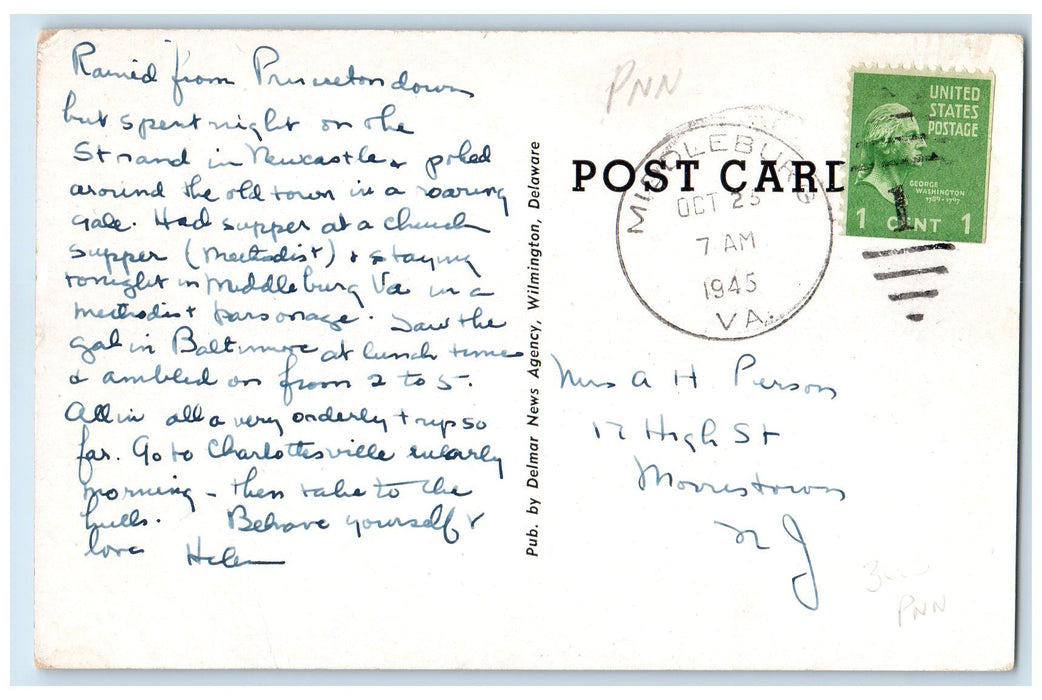 Rained from Princeton down
but spent night on the
Strand in Newcastle & poked
around the old town in a roaring
gale. Had supper at a church
supper (Methodist) & staying
tonight in Middleburg Va in a
Methodist parsonage. Saw the
gal in Baltimore at lunch time
& ambled on from 2 to 5.
All in all a very orderly trip so
far. Go to Charlottesville
morning - then take to the
hills. Behave yourself &
love Helen
Pub. by Delmar News Agency, Wilmington, Delaware
PNN
POST CARD
MIDDLEBURG
OCT 23
7 AM
1945
VA.
UNITED
STATES
POSTAGE
GEORGE
WASHINGTON
1789-1797
1 CENT 1
Mrs A H Person
17 High St
Morristown
N J
PNN